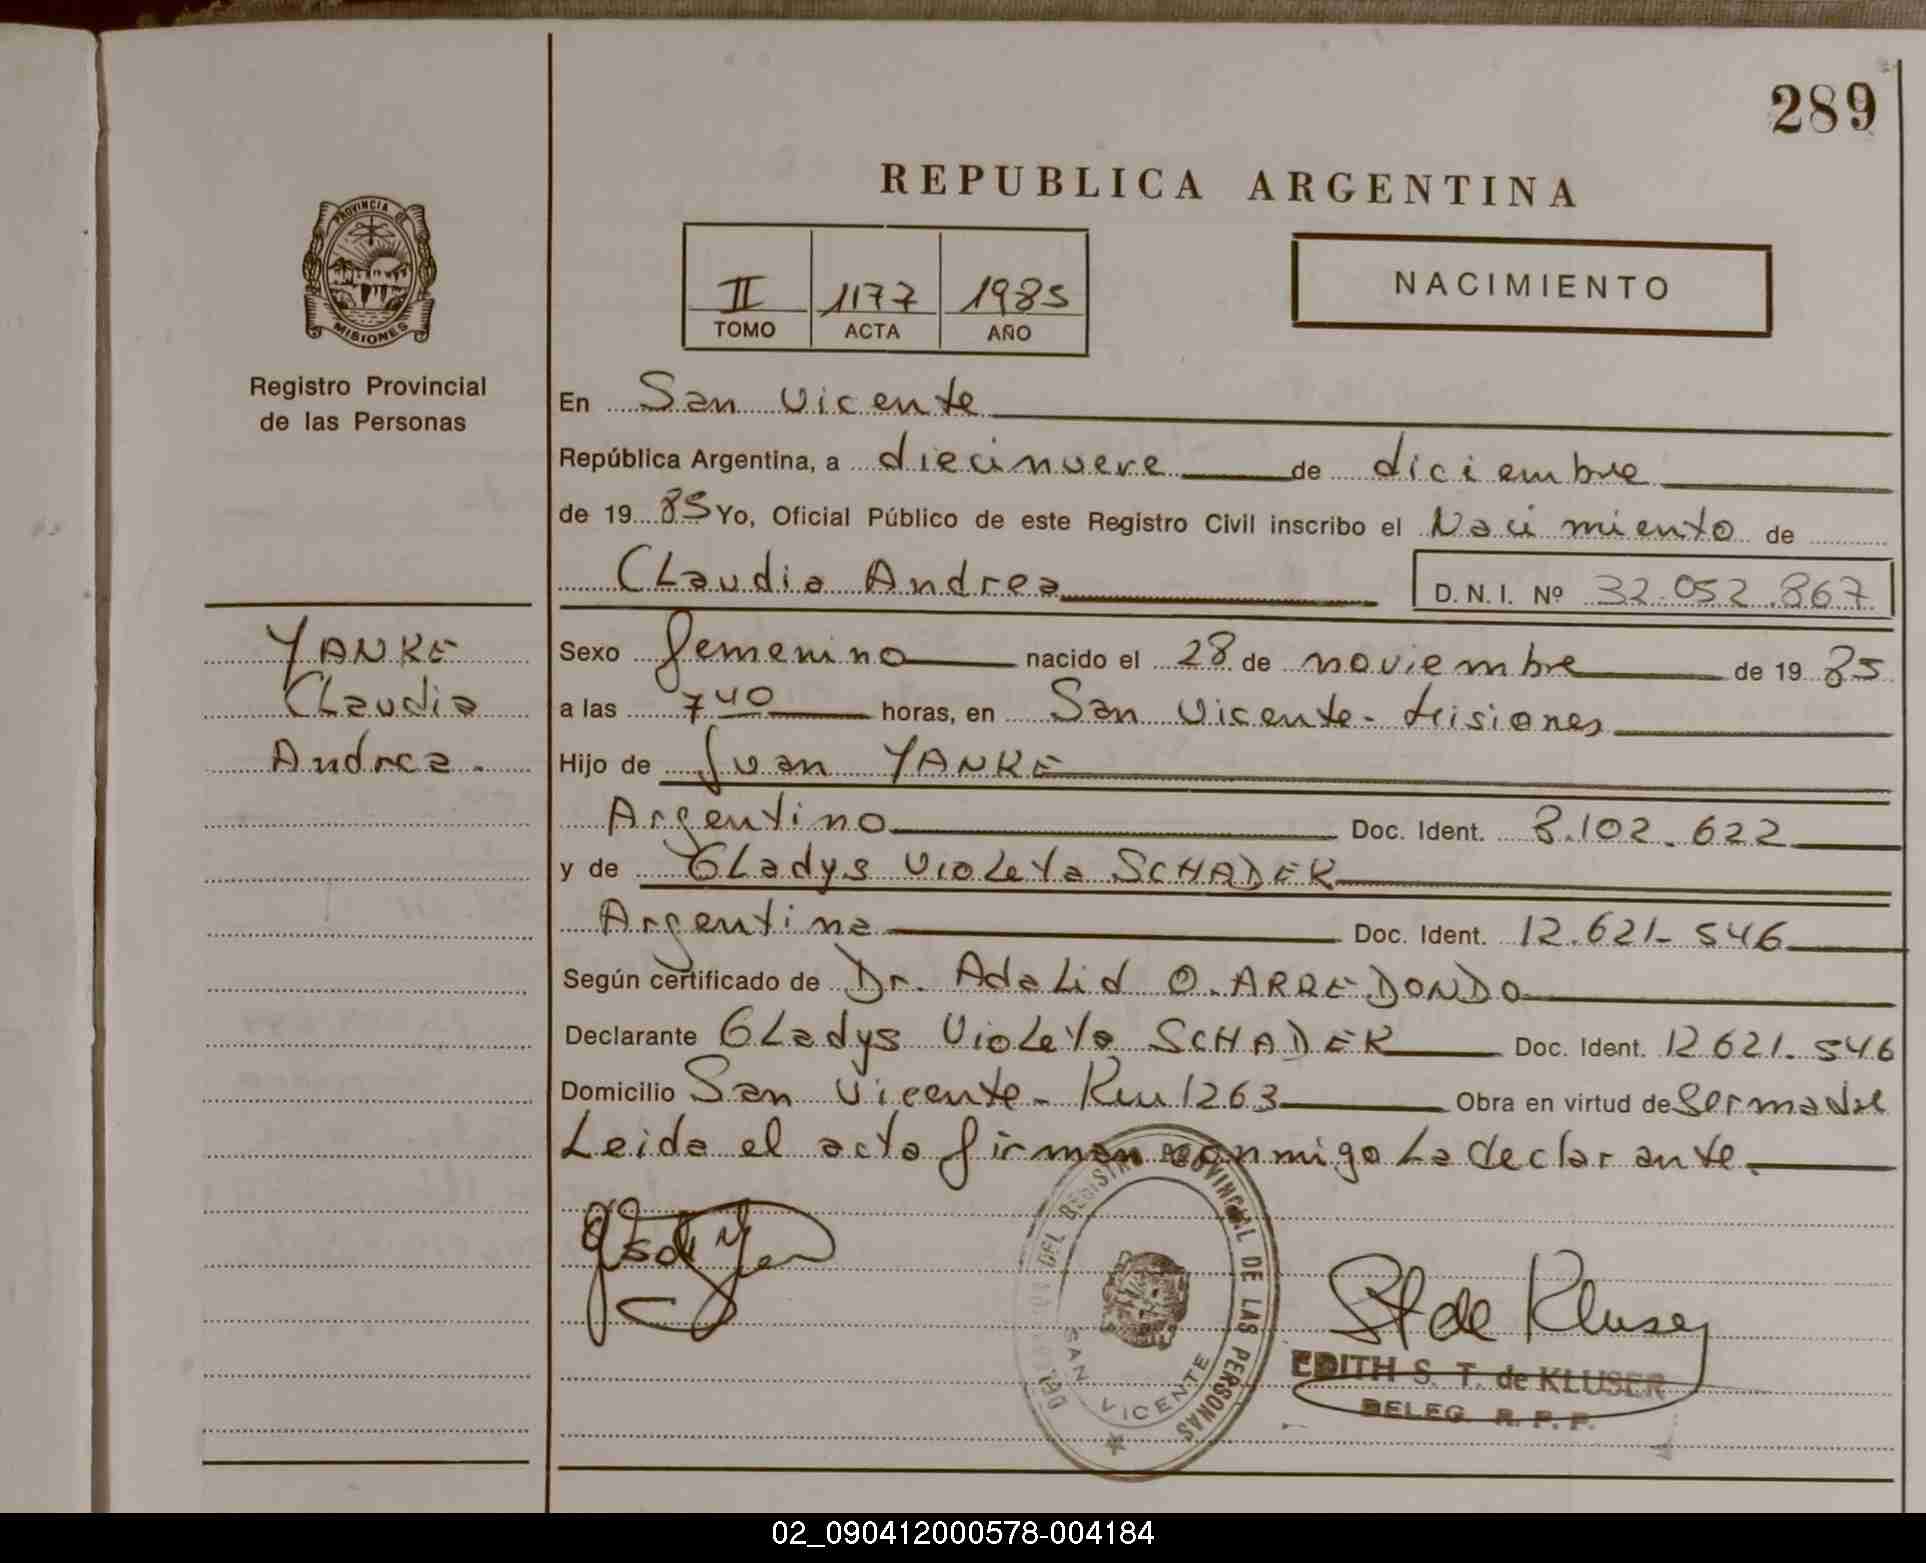 289
REPUBLICA ARGENTINA
PROVINCIA DE
MISIONES
Registro Provincial
de las Personas
II 1177 1985
TOMO ACTA AÑO
NACIMIENTO
En San Vicente
República Argentina, a diecinueve de diciembre
de 19 85 Yo, Oficial Público de este Registro Civil inscribo el Nacimiento de
Claudia Andrea D.N.I. Nº 32.052.867
YANKE
Claudia
Andrea.
Sexo femenino nacido el 28 de noviembre de 19 85
a las 7,40 horas, en San Vicente - Misiones
Hijo de Juan YANKE
Argentino Doc. Ident. 8.102.622
y de Gladys Violeta SCHADER
Argentina Doc. Ident. 12.621.546
Según certificado de Dr. Adalid O. ARREDONDO
Declarante Gladys Violeta SCHADER Doc. Ident. 12.621.546
Domicilio San Vicente - Km 1263 Obra en virtud de Ser madre
Leida el acta firman conmigo la declarante.
DEL REGISTRO PROVINCIAL DE LAS PERSONAS
SAN VICENTE
St de Kluser
EDITH S. T. de KLUSER
DELEG. R. P. P.
02_090412000578-004184